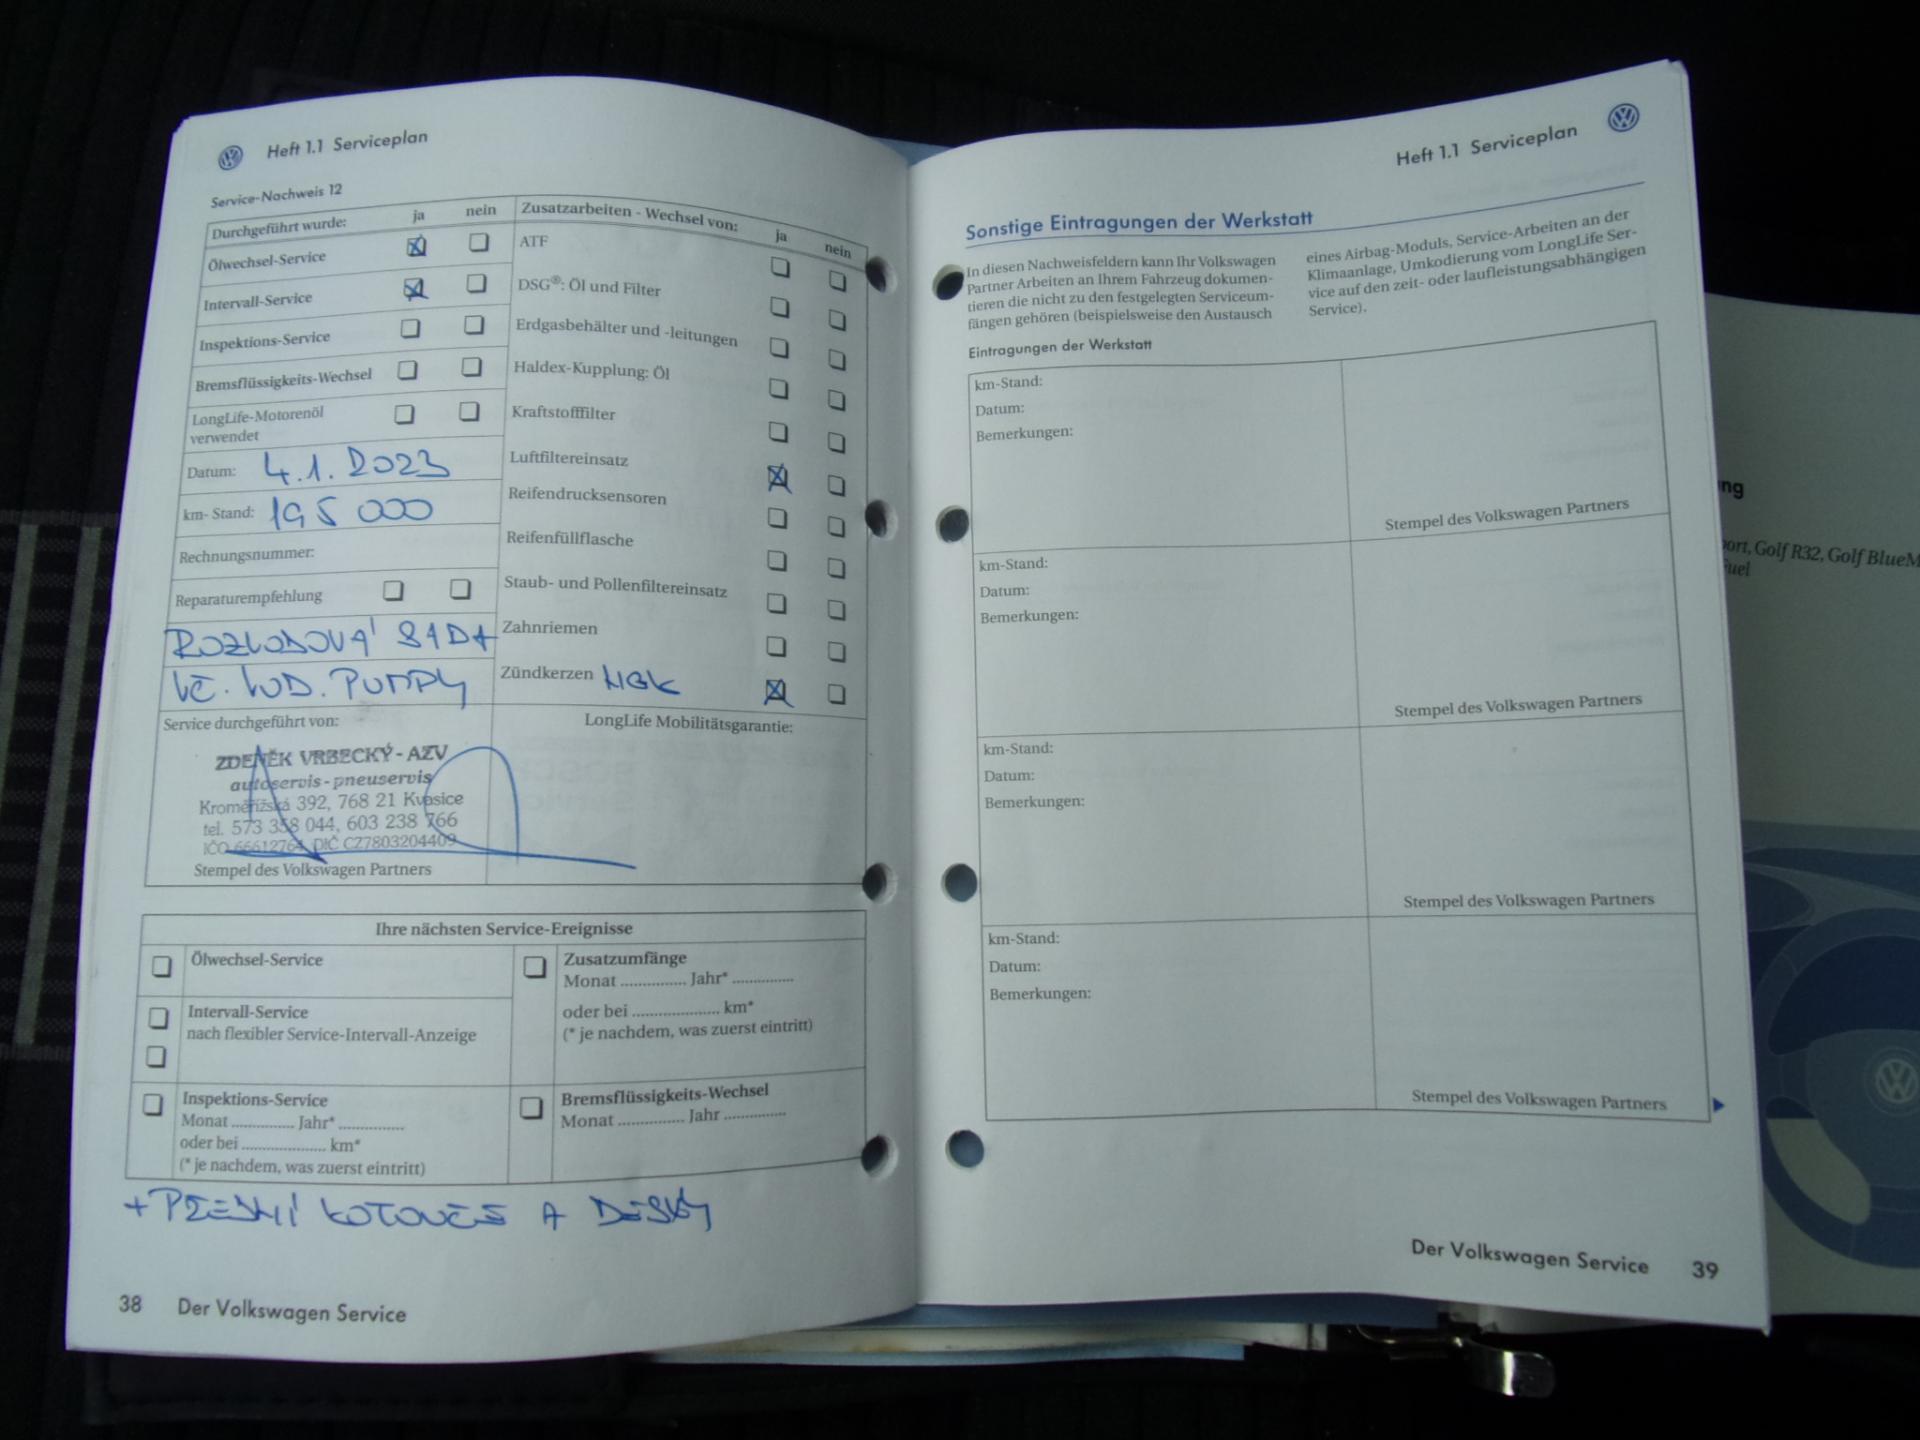 Heft 1.1 Serviceplan
Service-Nachweis 12
Durchgeführt wurde: ja nein
Ölwechsel-Service
Intervall-Service
Inspektions-Service
Bremsflüssigkeits-Wechsel
LongLife-Motorenöl
verwendet
Datum: 4.1.2023
km- Stand: 195 000
Rechnungsnummer:
Reparaturempfehlung
ROZVODOVÁ SADA
VČ. VOD. PUMPY
Zusatzarbeiten - Wechsel von: ja nein
ATF
DSG®: Öl und Filter
Erdgasbehälter und -leitungen
Haldex-Kupplung: Öl
Kraftstofffilter
Luftfiltereinsatz
Reifendrucksensoren
Reifenfüllflasche
Staub- und Pollenfiltereinsatz
Zahnriemen
Zündkerzen NGK
Service durchgeführt von:
ZDENĚK VRBECKÝ - AZV
autoservis - pneuservis
Kroměřížská 392, 768 21 Kvasice
tel. 573 358 044, 603 238 766
IČO 66612764, DIČ CZ7803204409
Stempel des Volkswagen Partners
LongLife Mobilitätsgarantie:
Ihre nächsten Service-Ereignisse
Ölwechsel-Service
Intervall-Service
nach flexibler Service-Intervall-Anzeige
Inspektions-Service
Monat ............... Jahr* ...............
oder bei .................... km*
(* je nachdem, was zuerst eintritt)
Zusatzumfänge
Monat ............... Jahr* ...............
oder bei .................... km*
(* je nachdem, was zuerst eintritt)
Bremsflüssigkeits-Wechsel
Monat ............... Jahr ...............
+ PŘEDNÍ KOTOUČE A DESKY
38 Der Volkswagen Service
Heft 1.1 Serviceplan
Sonstige Eintragungen der Werkstatt
In diesen Nachweisfeldern kann Ihr Volkswagen
Partner Arbeiten an Ihrem Fahrzeug dokumen-
tieren die nicht zu den festgelegten Serviceum-
fängen gehören (beispielsweise den Austausch
eines Airbag-Moduls, Service-Arbeiten an der
Klimaanlage, Umkodierung vom LongLife Ser-
vice auf den zeit- oder laufleistungsabhängigen
Service).
Eintragungen der Werkstatt
km-Stand:
Datum:
Bemerkungen:
Stempel des Volkswagen Partners
km-Stand:
Datum:
Bemerkungen:
Stempel des Volkswagen Partners
km-Stand:
Datum:
Bemerkungen:
Stempel des Volkswagen Partners
km-Stand:
Datum:
Bemerkungen:
Stempel des Volkswagen Partners
Der Volkswagen Service 39
ng
port, Golf R32, Golf BlueM
Fuel